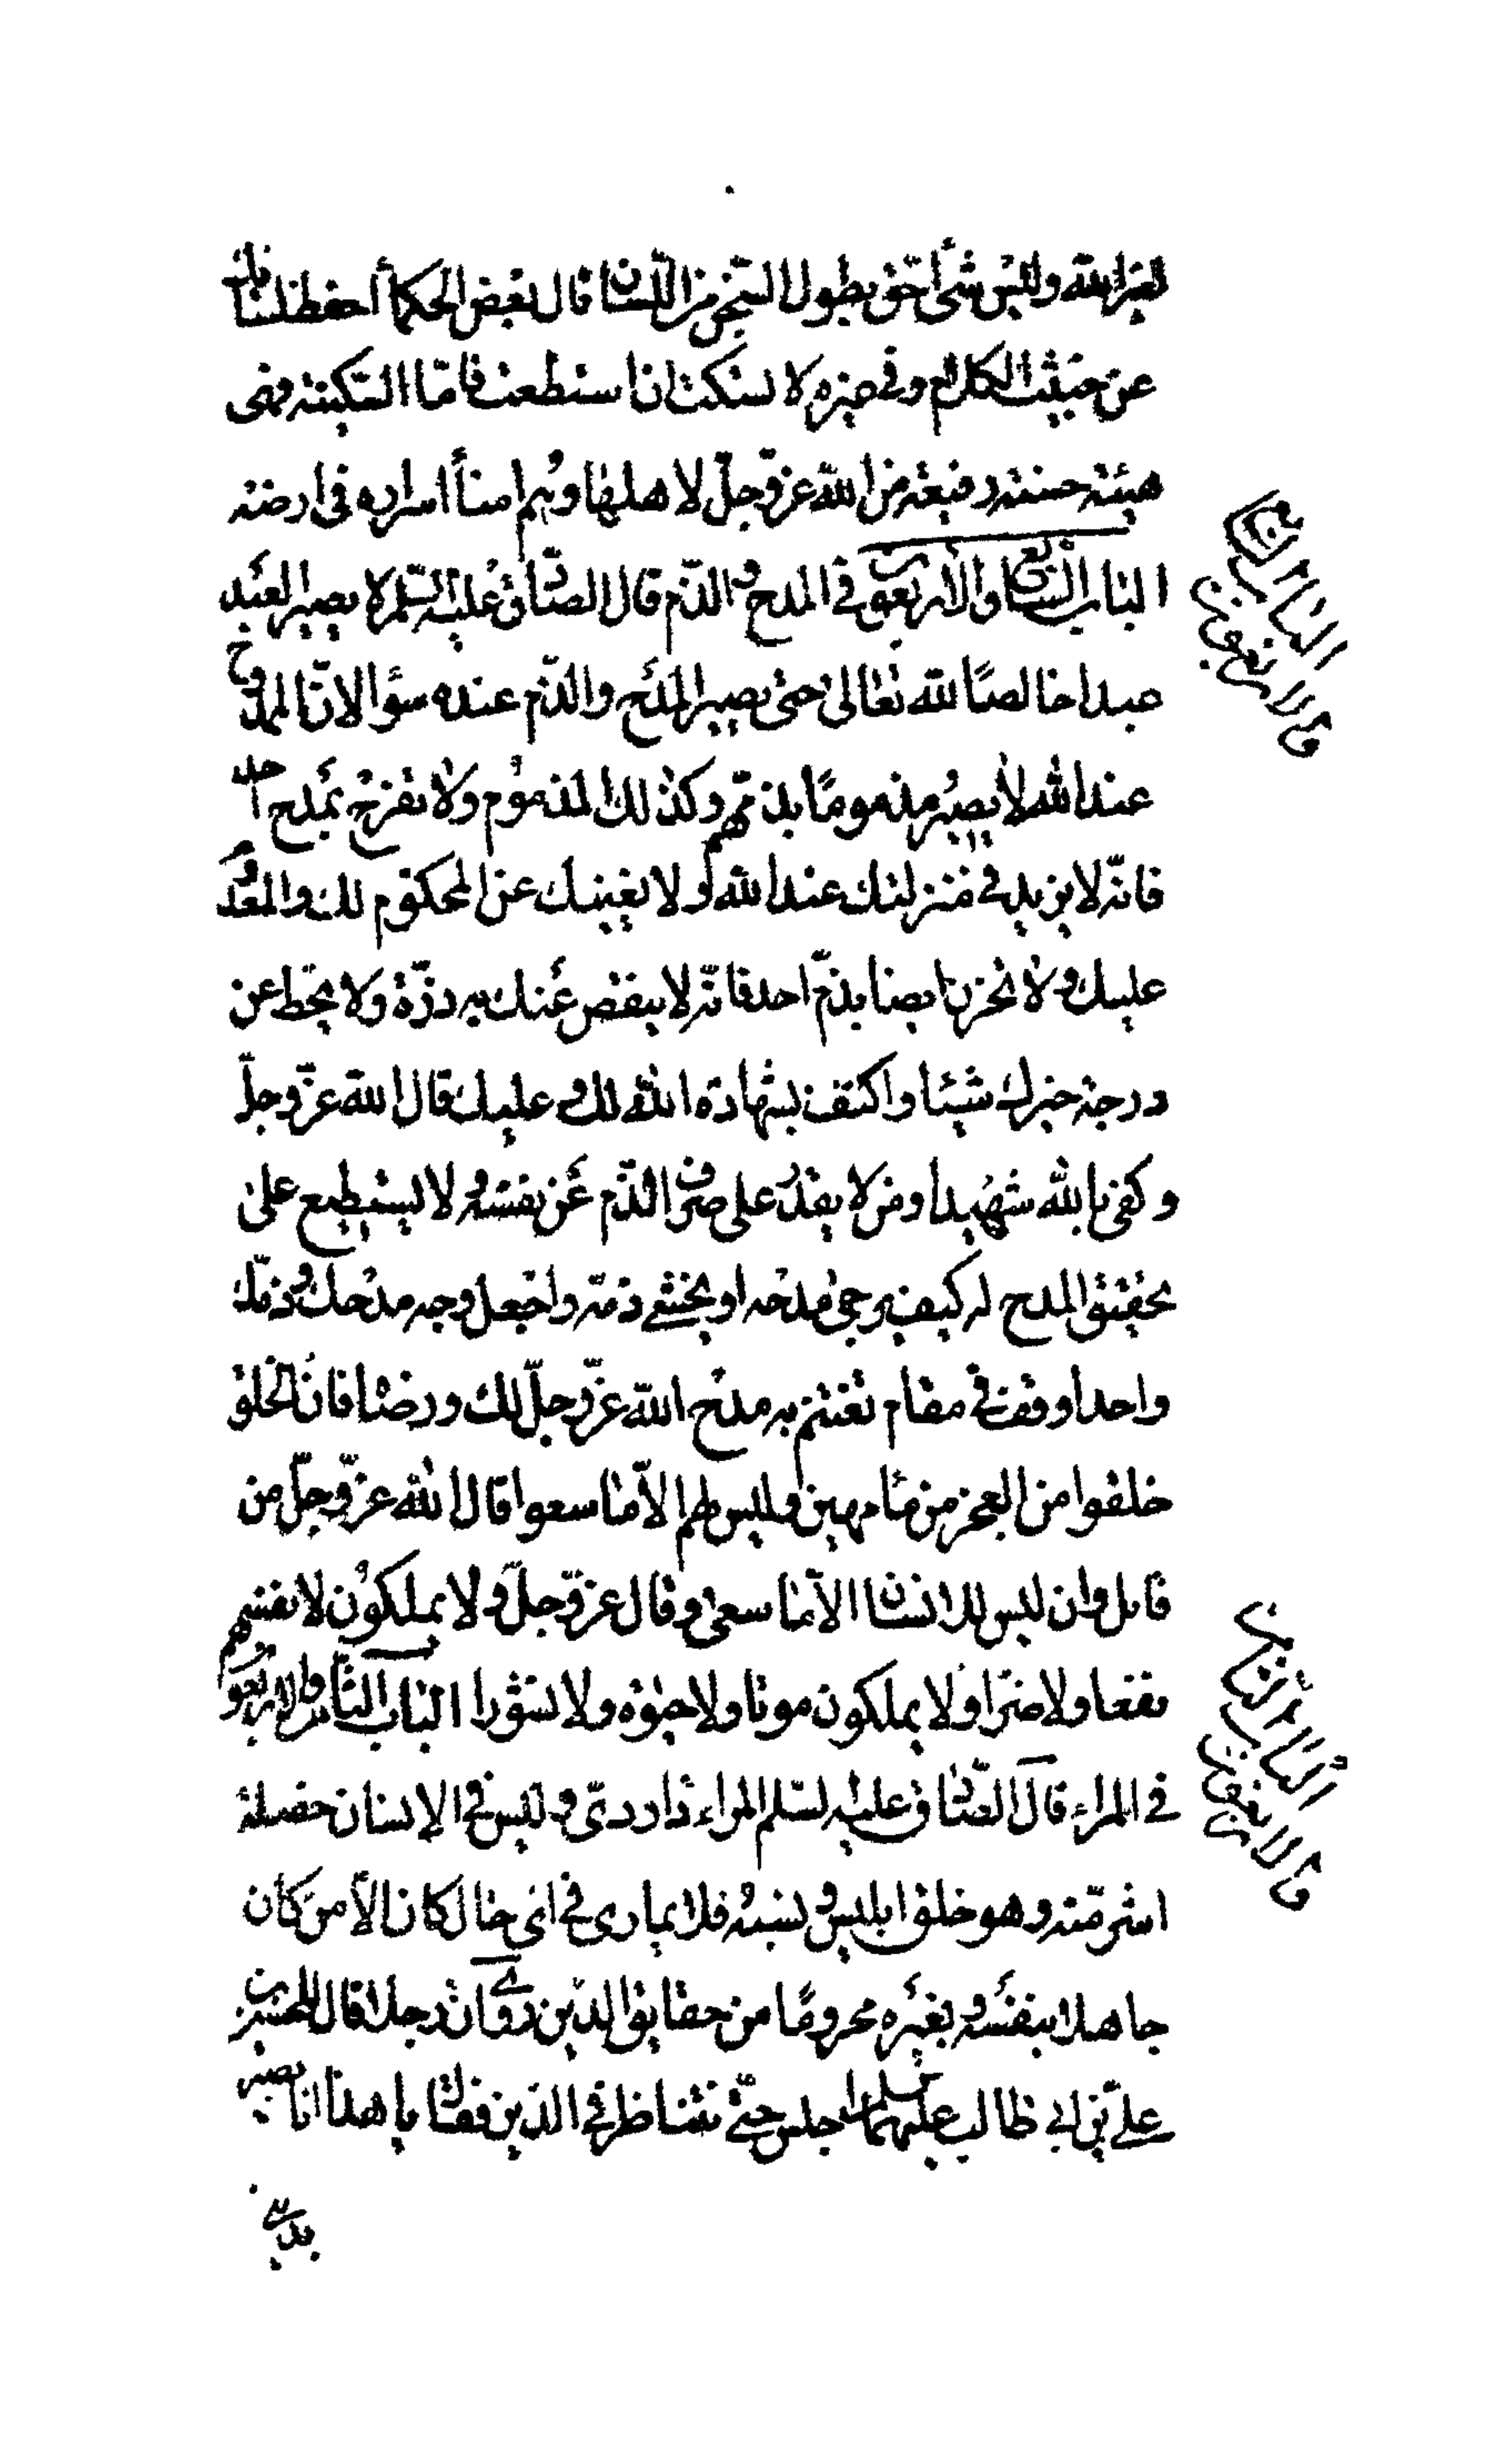 لغير الله وليس شئ احق بطول السجن من اللسان قال بعض الحكمأ احفظ لسانك
عن خبيث الكلام وفي غيره لا تسكت ان استطعت فامّا السّكينة فهى
هيئة حسنة رفيعة من الله عزّ وجلّ لاهلها وهم امنأ اسراره فى ارضه
الباب السابع والاربعون فى المدح والذّم قال الصّادق عليه السّلم لا يصير العبد
عبدا خالصًا لله تعالى حتى يصير المدح والذّم عنده سوٓأ لانّ الممدوح
عند الله لا يصير مذمومًا بذمّهم وكذلك المذموم ولا تفرح بمدح احد
فانّه لا يزيد فى منزلتك عند الله ولا يغنيك عن المحكوم لك والمقدور
عليك ولا تحزن ايضا بذمّ احد فانّه لا ينقص عنك به ذرّة ولا يحطّ عن
درجة خيرك شيئا واكتف بشهادة الله لك وعليك قال الله عزّ وجلّ
وكفى بالله شهيدا ومن لا يقدر على صرف الذّم عن نفسه ولا يستطيع على
تحقيق المدح له كيف يرجى مدحه او يخشى ذمّه واجعل وجه مدحك وذمّك
واحدا وقف فى مقام تغتنم به مدح الله عزّ وجلّ لك ورضاه فانّ الخلق
خلقوا من العجز من مآء مهين وليس لهم الاّ ما سعوا قال الله عزّ وجلّ من
قائل وان ليس للانسان الاّ ما سعى وقال عزّ وجلّ ولا يملكون لانفسهم
نفعا ولا ضرّا ولا يملكون موتا ولا حيوة ولا نشورا الباب الثّامن والاربعون
فى المراء قال الصّادق عليه السّلم المراء دآء ردىّ وليس فى الانسان خصلة
اشرّ منه وهو خلق ابليس ونسبته فلا يمارى فى اىّ حال كان الاّ من كان
جاهلا بنفسه وبغيره محروما من حقايق الدّين روى انّ رجلا قال للحسين بن
علىّ بن ابى طالب عليهما السلم اجلس حتّى نتناظر فى الدّين فقال يا هذا انا بصير
بدينى
الباب السابع
والاربعون
الباب الثامن
والاربعون